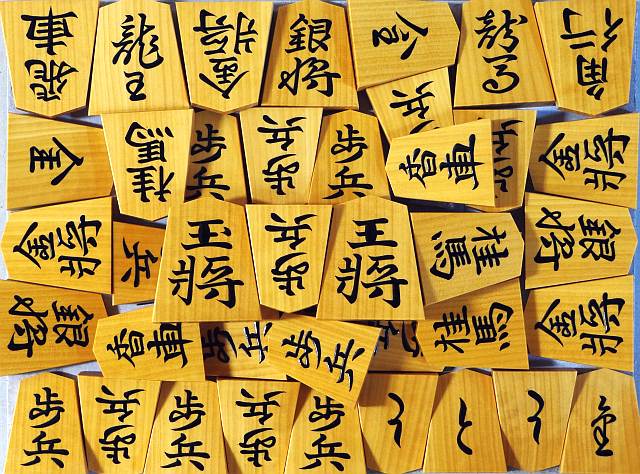 飛車
龍王
金将
銀将
龍馬
角行
歩兵
桂馬
歩兵
歩兵
歩兵
香車
歩兵
金将
金将
兵
玉將
歩兵
王將
桂馬
銀将
銀将
香車
歩兵
歩兵
桂馬
金将
歩兵
歩兵
歩兵
歩兵
歩兵
と
と
と